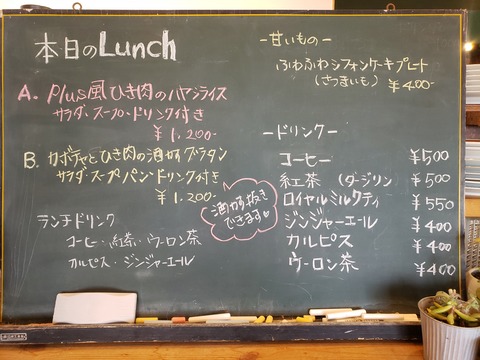 本日のLunch
A. Plus風ひき肉のハヤシライス
サラダ・スープ・ドリンク付き
¥1,200-
B. カボチャとひき肉の酒かすグラタン
サラダ・スープ・パン・ドリンク付き
¥1,200-
酒かす抜き
できます♡
ランチドリンク
コーヒー・紅茶・ウーロン茶
カルピス・ジンジャーエール
-甘いもの-
ふわふわシフォンケーキプレート
(さつまいも) ¥400-
-ドリンク-
コーヒー ¥500
紅茶 (ダージリン ¥500
ロイヤルミルクティ ¥550
ジンジャーエール ¥400
カルピス ¥400
ウーロン茶 ¥400